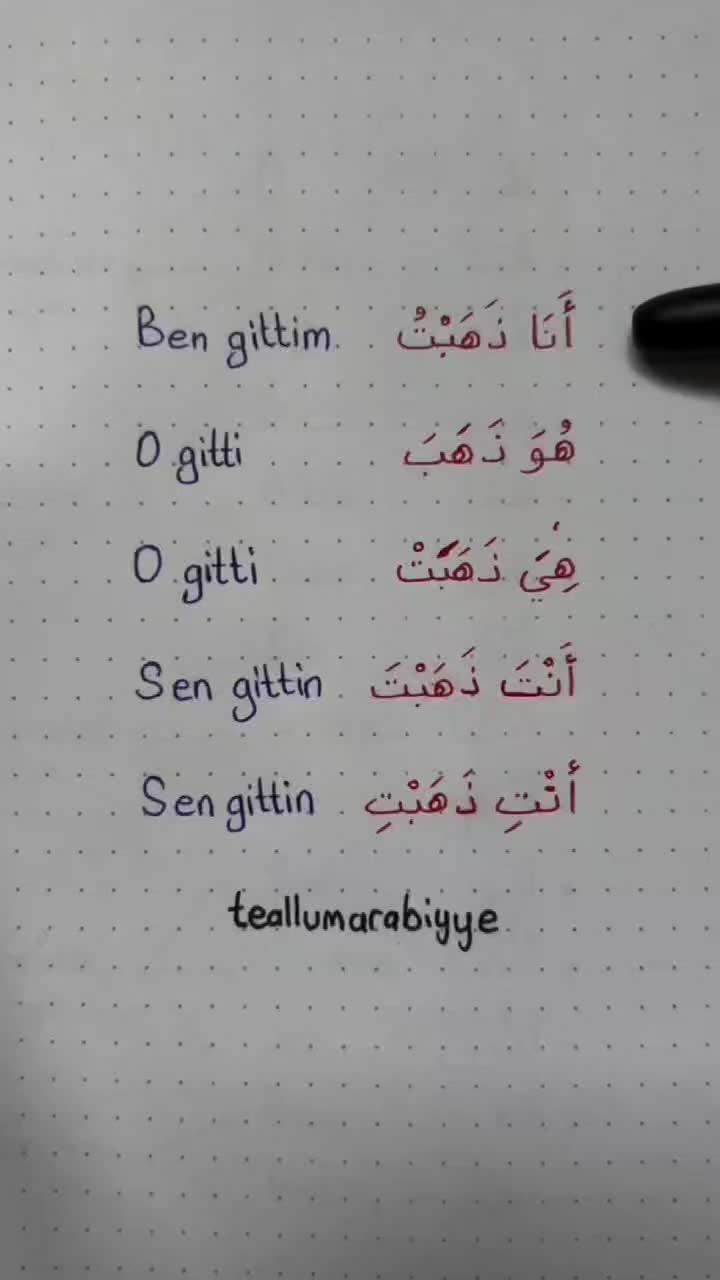 Ben gittim. أَنَا ذَهَبْتُ
O gitti هُوَ ذَهَبَ
O gitti هِيَ ذَهَبَتْ
Sen gittin أَنْتَ ذَهَبْتَ
Sen gittin أنْتِ ذَهَبْتِ
teallumarabiyye